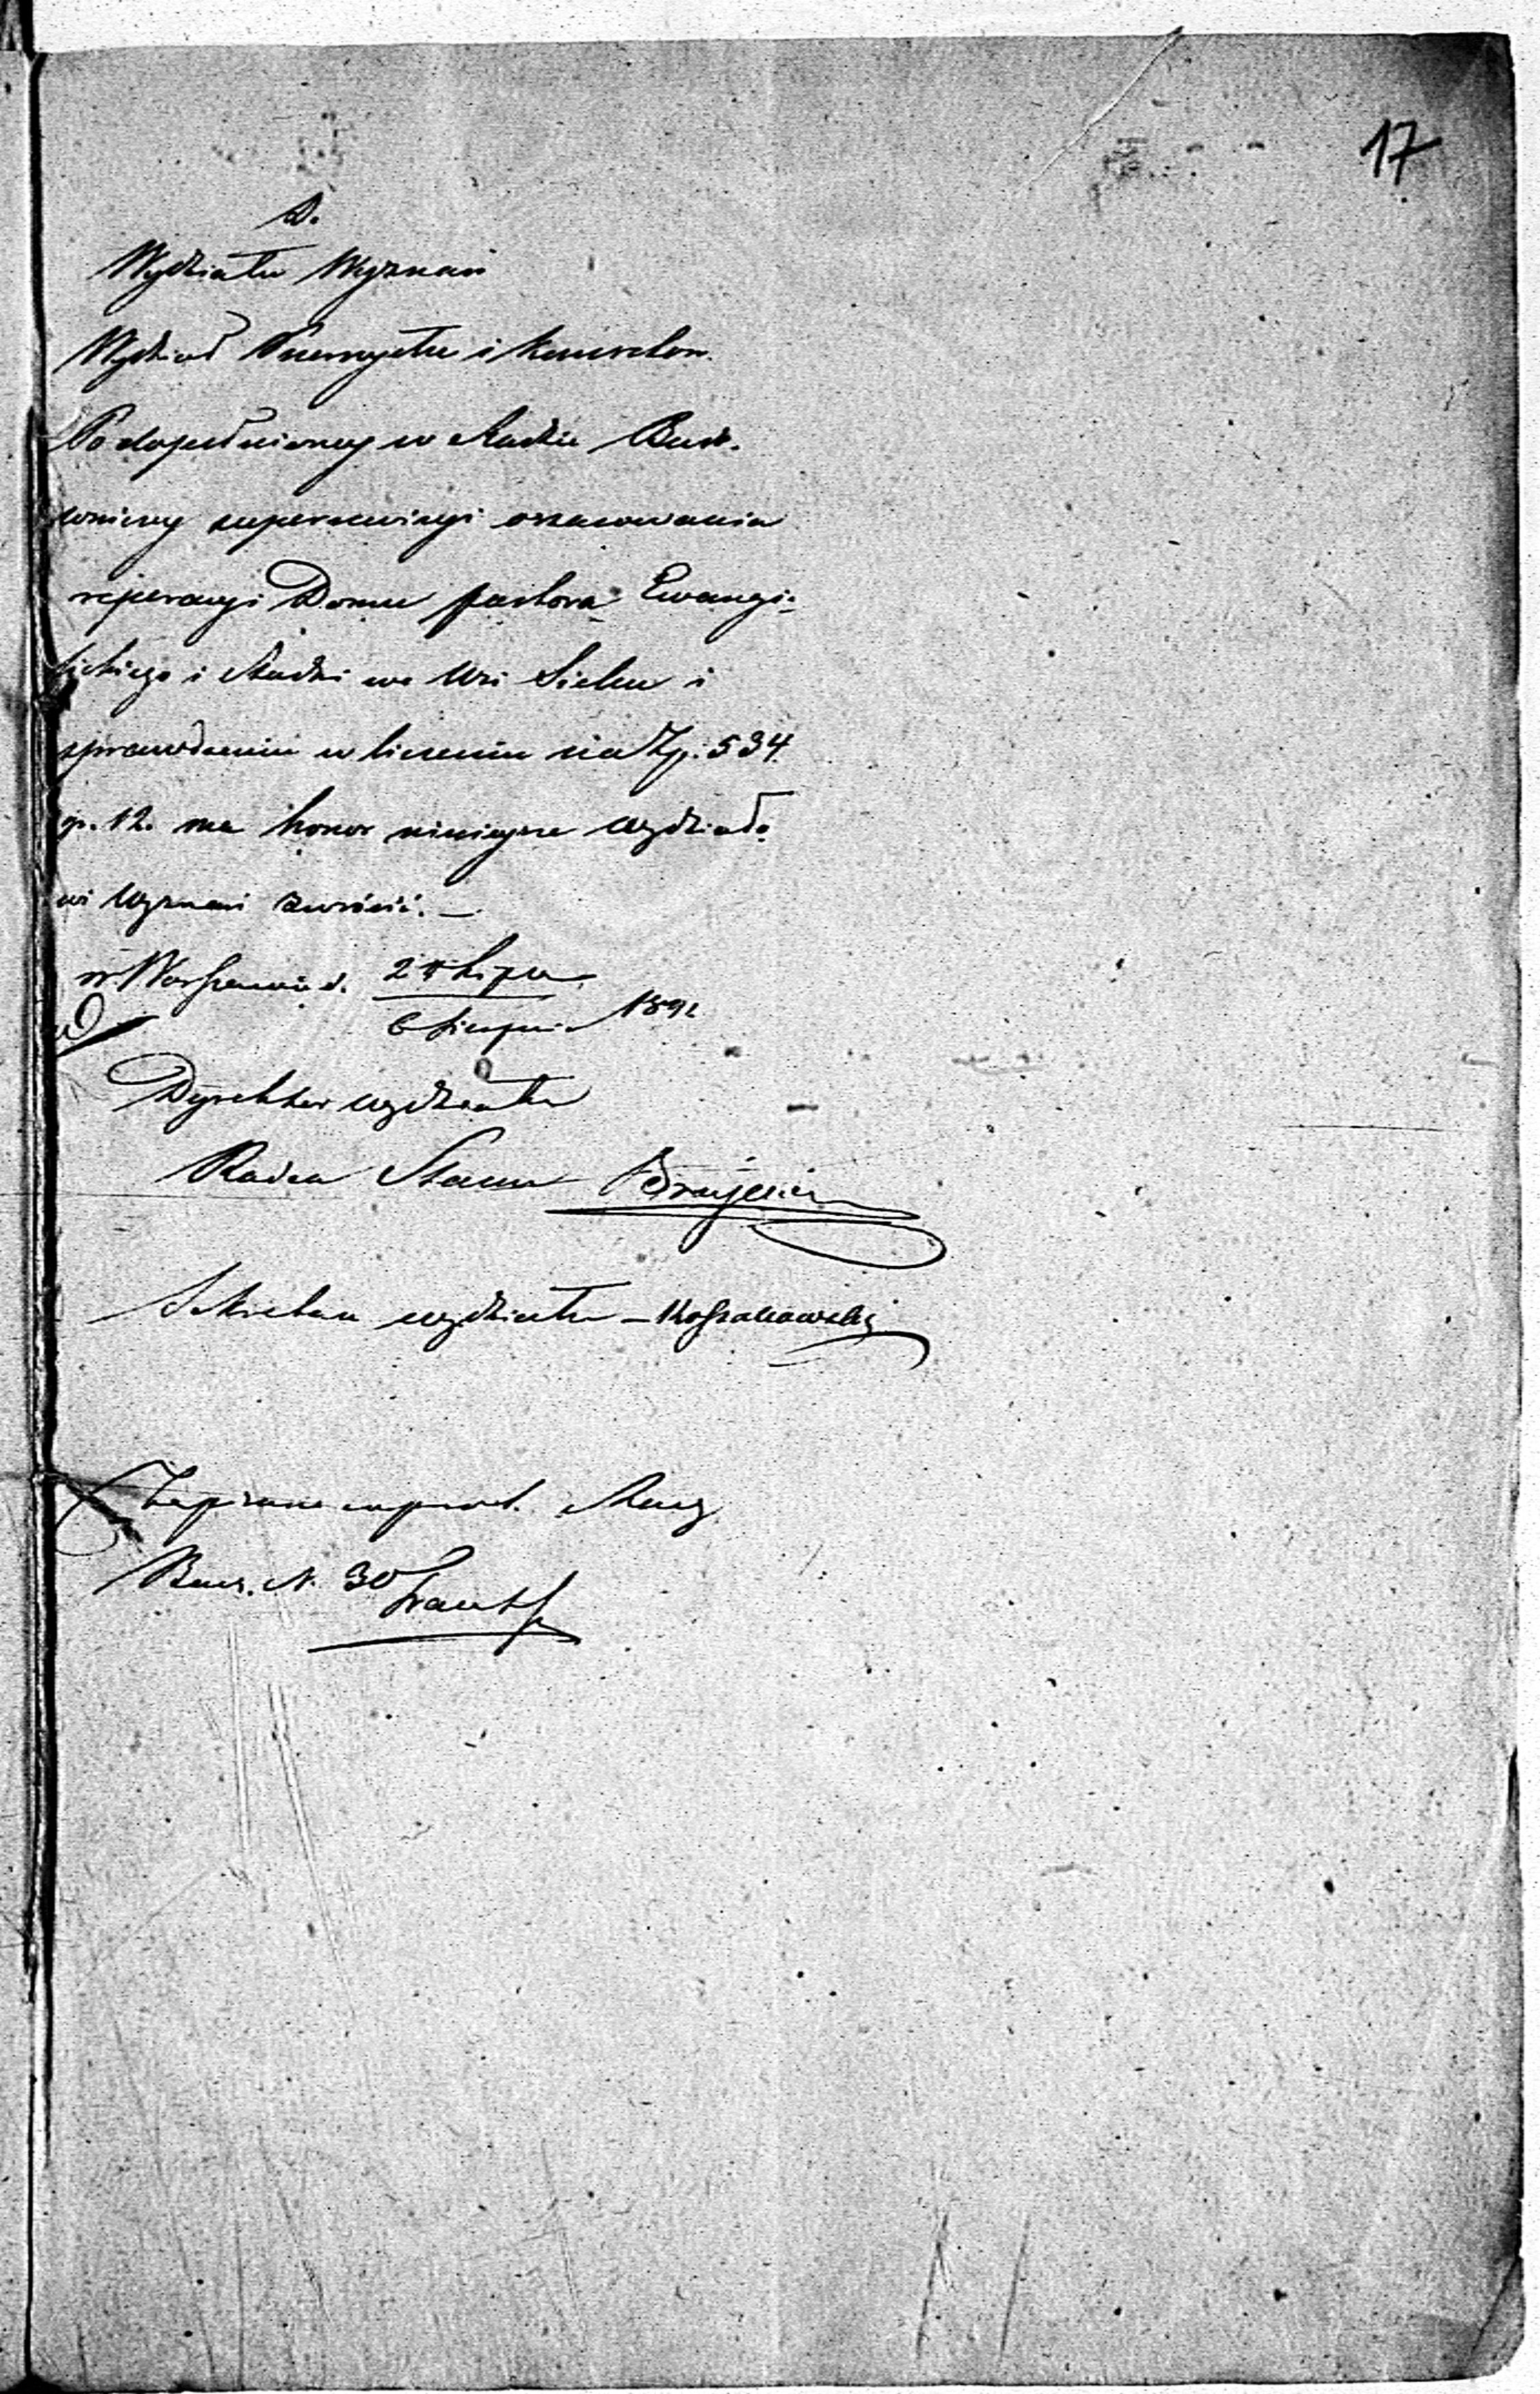 17
D.
Wydziału Wyznań
Wydział Przemysłu i Kunsztów.
Po dopełnioney w Radzie Budo-
wniczey superrewizyi oszacowania
reperacyi Domu pastora Ewangie-
lickiego i Studni we Wsi Sielcu i
sprawdzeniu w liczeniu na Zp. 534.
gr. 12. ma honor ninieysze Wydziało-
wi Wyznań zwrócić. —
w Warszawie d. Lipca
6 Sierpnia
Dyrektor Wydziału
Radca Stanu
Sekretarz Wydziału — Kossakowski
Zapisano
Bud. N. 30